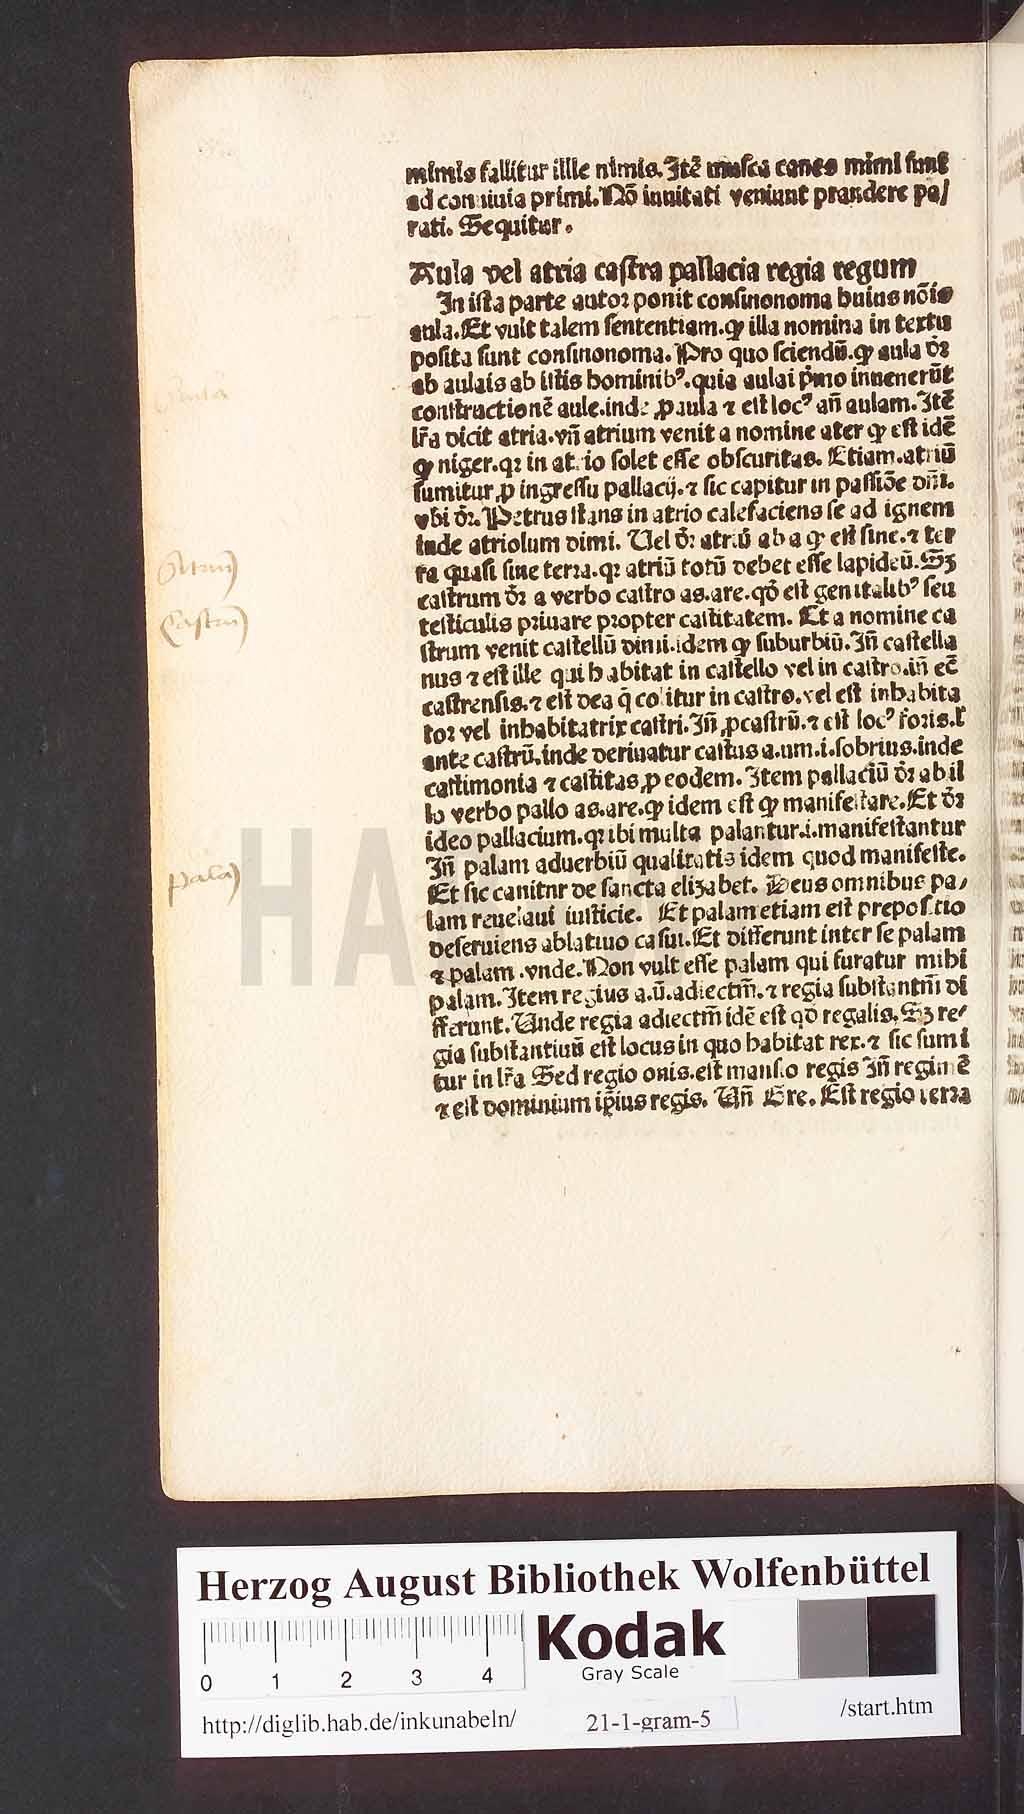 mimis fallitur illle nimis. Itē musca canes mimi sunt
ad conuiuia primi. Nō inuitati veniunt prandere pa/
rati. Sequitur.
Aula vel atria castra pallacia regia regum
In ista parte autor ponit consinonoma huius nōis
aula. Et vult talem sententiam. ꝙ illa nomina in textu
posita sunt consinonoma. Pro quo sciendū. ꝙ aula dr̄
ab aulais ab illis hominibꝰ. quia aulai p̄mo inuenerūt
constructionē aule. inde ꝓaula ⁊ est locꝰ an̄ aulam. Itē
lr̄a dicit atria. vn̄ atrium venit a nomine ater ꝙ est idē
ꝙ niger. qꝛ in atrio solet esse obscuritas. Etiam. atriū
sumitur ꝓ ingressu pallacij. ⁊ sic capitur in passiōe dn̄i.
vbi dr̄. Petrus stans in atrio calefaciens se ad ignem
inde atriolum dimi. Uel dr̄ atriū ab a ꝙ est sine. ⁊ ter
ra quasi sine terra. qꝛ atriū totū debet esse lapideū. Sꝫ
castrum dr̄ a verbo castro as. are. qd̄ est genitalibꝰ seu
testiculis priuare propter castitatem. Et a nomine ca
strum venit castellū dinii. idem ꝙ suburbiū. In̄ castella
nus ⁊ est ille qui habitat in castello vel in castro. in̄ ec̄
castrensis. ⁊ est dea q̄ colitur in castro. vel est inhabita
tor vel inhabitatrix castri. In̄ ꝓcastrū. ⁊ est locꝰ foris. l'
ante castrū. inde deriuatur castus a. um. i. sobrius. inde
castimonia ⁊ castitas ꝓ eodem. Item pallaciū dr̄ ab il
lo verbo pallo as. are. ꝙ idem est ꝙ manifestare. Et dr̄
ideo pallacium. qꝛ ibi multa palantur. i. manifestantur
In̄ palam aduerbiū qualitatis idem quod manifeste.
Et sic canitnr de sancta elizabet. Deus omnibus pa/
lam reuelaui iusticie. Et palam etiam est prepositio
deseruiens ablatiuo casui. Et differunt inter se palam
⁊ palam. vnde. Non vult esse palam qui furatur mihi
palam. Item regius a. ū. adiectm̄. ⁊ regia substantm̄ di
fferunt. Unde regia adiectm̄ idē est qd̄ regalis. Sꝫ re/
gia substantiuū est locus in quo habitat rex. ⁊ sic sumi
tur in lr̄a Sed regio onis. est mansio regis In̄ regimē
⁊ est dominium ip̄ius regis. Un̄ Gre. Est regio terra
Atrium
Castrū
palā
HAB
Herzog August Bibliothek Wolfenbüttel
0 1 2 3 4
Kodak
Gray Scale
http://diglib.hab.de/inkunabeln/
21-1-gram-5
/start.htm